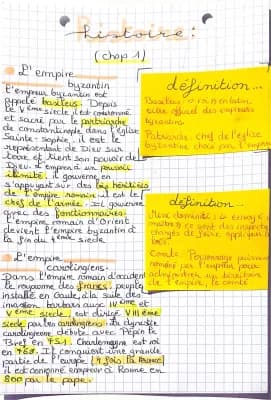 histoire:
(chap 1)
L'empire
byzantin
L'empereur byzantin est
appelé basileus. Depuis
le Vème siècle il est couronné
et sacré par le patriarche
de constantinople dans l'église
Sainte-Sophie, il est le
représentant de Dieu sur
terre et tient son pouvoir de
Dieu. d'empereur à un pouvoir
illimité. il gouverne en
s'appuyant sur des lois héritées
de l'empire romain il est le
chef de l'armée. Il gouverne
avec des fonctionnaires.
L'empire romain d'Orient
devient l'Empire byzantin à
la fin du siècle
L'empire
carolingien.
Dans l'empire romain d'occident
le royaume des francs, peuple
installé en Gaule à la suite des
invasion barbare aux IVème et
Vème siècle, est dirigé VIIIème
siècle par les carolingiens. La dynastie
carolingienne débute avec Pépin le
Bref en 751. Charlemagne est roi
en 768. Il conquiert une grande
partie de l'europe (4 fois la France)
il est couronné empereur à Rome en
800 par le pape.
définition...
Basileus: roi en latin
titre officiel des empereurs
byzantins
Patriarche: chef de l'église
byzantine choisi par l'empereur
définition...
Missi dominici: envoyé
maîtres) ce sont des inspecteurs
chargés de faire appliquer
Comte: Personnage puissant
nommé par l'empereur pour
administrer un
de l'empire, le comté